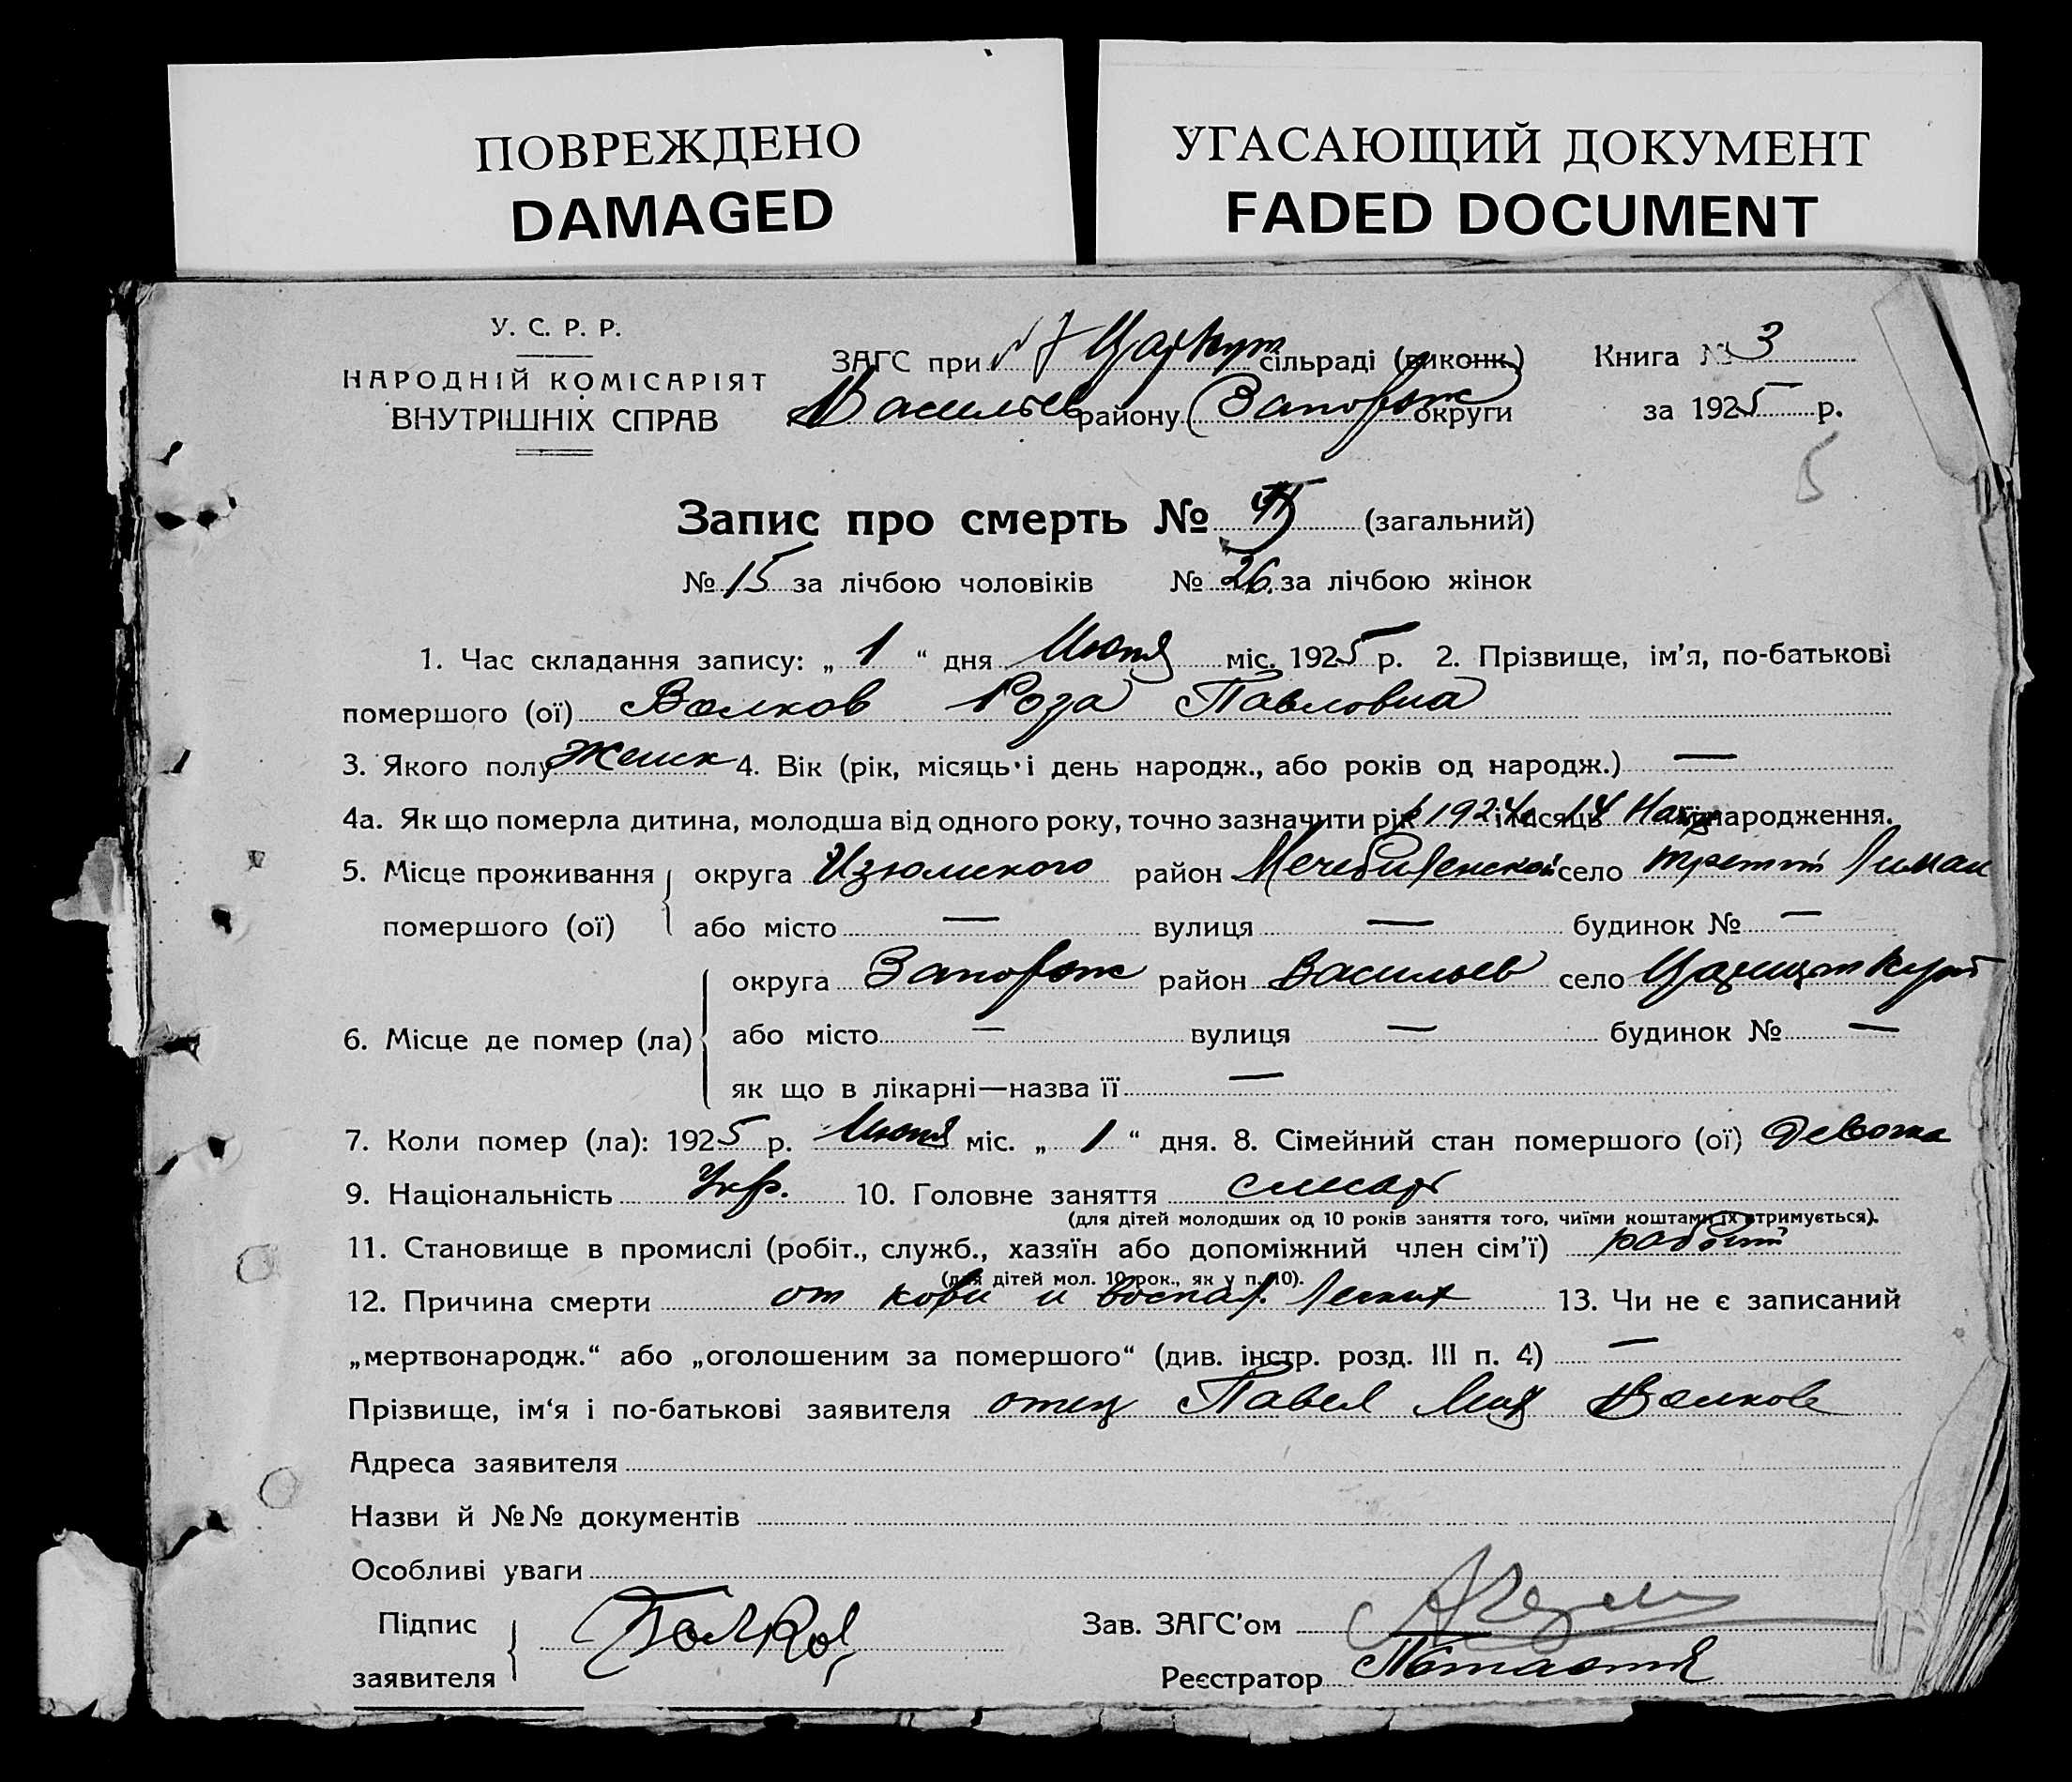 ПОВРЕЖДЕНО
DAMAGED
УГАСАЮЩИЙ ДОКУМЕНТ
FADED DOCUMENT
У. С. Р. Р.
НАРОДНІЙ КОМІСАРІЯТ
ВНУТРІШНІХ СПРАВ
ЗАГС при Царкут сільраді (виконк.)
Васильев району Запорож округи
Книга № 3
за 1925 р.
5
Запис про смерть № (загальний)
№ 15 за лічбою чоловіків № 26. за лічбою жінок
1. Час складання запису: „ 1 “ дня Июня міс. 1925 р. 2. Прізвище, ім’я, по-батькові
помершого (ої) Волков Роза Павловна
3. Якого полу Женск 4. Вік (рік, місяць і день народж., або років од народж.) —
4а. Як що померла дитина, молодша від одного року, точно зазначити рік 1924 і місяць 14 народження.
5. Місце проживання округа Изюмского район село третий Лиман
помершого (ої) або місто — вулиця — будинок № —
округа Запорож район Васильев село Царицын Кут
6. Місце де помер (ла) або місто — вулиця — будинок № —
як що в лікарні—назва її —
7. Коли помер (ла): 1925 р. Июня міс. „ 1 “ дня. 8. Сімейний стан помершого (ої)
9. Національність Укр. 10. Головне заняття слесарь
(для дітей молодших од 10 років заняття того, чиїми коштами їх втримується).
11. Становище в промислі (робіт., служб., хазяїн або допоміжний член сім’ї)
(для дітей мол. 10 рок., як у п. 10).
12. Причина смерти от кори и воспал. легких 13. Чи не є записаний
„мертвонародж.“ або „оголошеним за помершого“ (див. інстр. розд. III п. 4) —
Прізвище, ім‘я і по-батькові заявителя отец Павел Волков
Адреса заявителя
Назви й №№ документів
Особливі уваги
Підпис
заявителя
Зав. ЗАГС’ом
Реєстратор